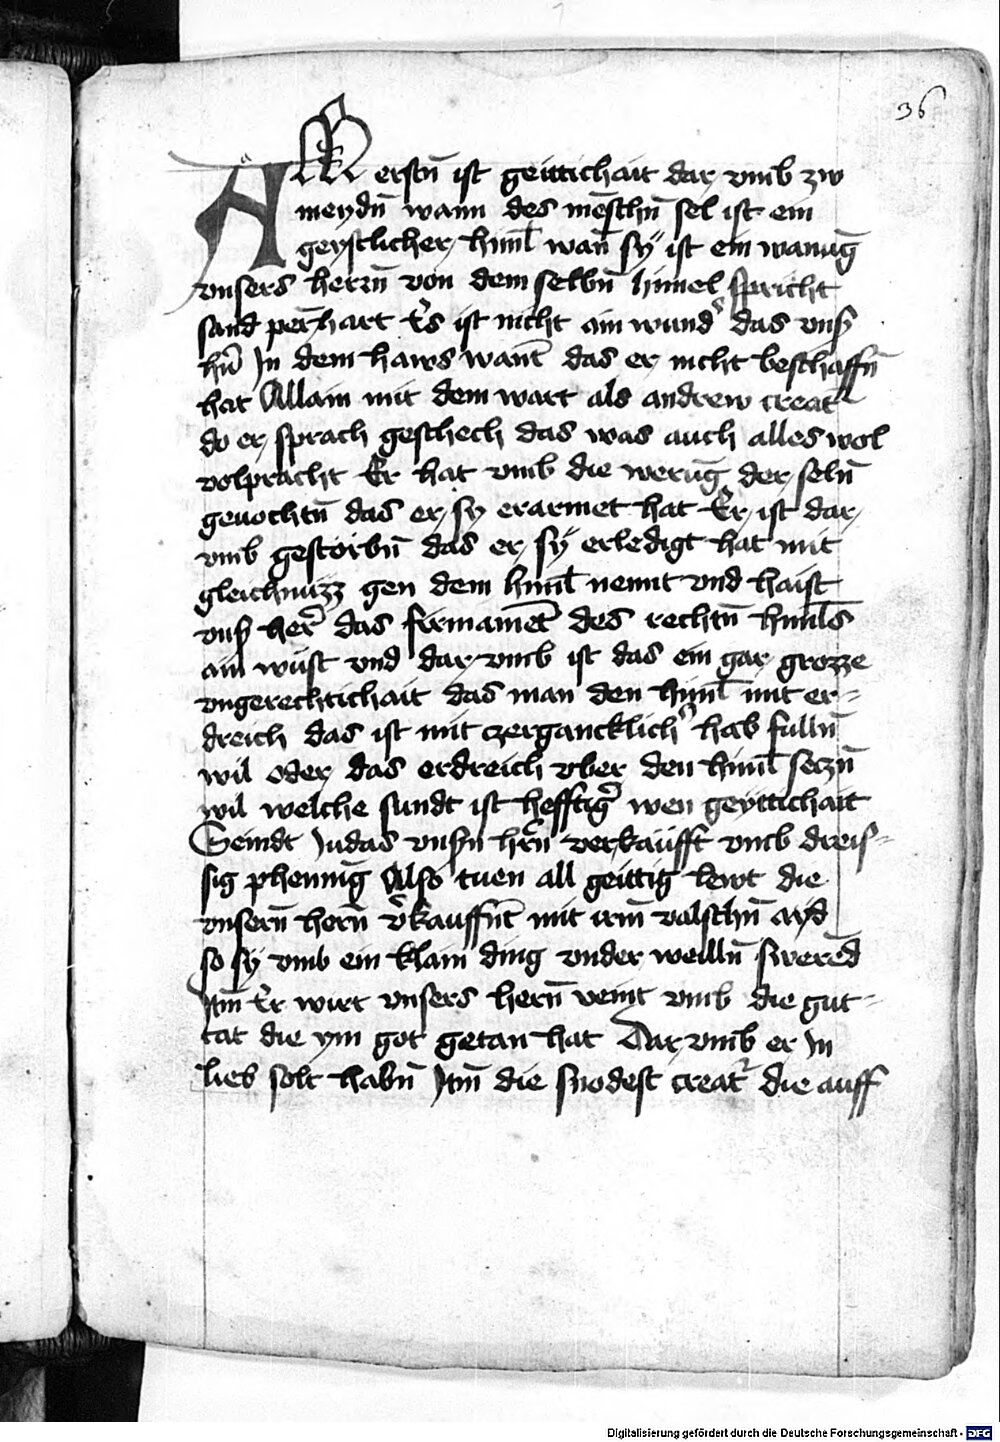 36
AM erstn̄ ist geittichait dar vmb zw
meydn̄ wann des mēschn̄ sel ist ein
geystlicher himl̄ wan̄ sÿ ist ein wanūg
vnsers herrn̄ von dem selbn̄ himel spricht
sand pernhart Es ist nicht ain wundˀ das vnsˀ
hr̄ In dem haws want̄ das er nicht beschaffn̄
hat Allain mit dem wart als andrew creatˀ
do er sprach geschech das was auch alles wol
volpracht Er hat vmb die werūg der seln̄
geuochtn̄ das er sy erarmet hat Er ist dar
vmb gestorbn̄ das er sÿ erledigt hat mit
gleichnuzz gen dem himl̄ nennt vnd haist
vnsˀ herˀ das firmamēt des rechtn̄ himl̄s
ain wüst vnd dar vmb ist das ein gar grozze
vngerechtichait das man den himl̄ mit er=
dreich das ist mit czergancklichˀ hab fulln̄
wil oder das erdreich vber den himl̄ seczn̄
wil welche sundt ist hefftigˀ wen geyttichait
Seindt Judas vnsˀn hr̄n verkaufft vmb dreis=
sig phennīg Also tuen all geittig lewt die
vnsern̄ hern̄ vˀkauffnt̄ mit irm̄ valschn̄ ayd
so sÿ vmb ein klain ding vnder weilln̄ swerēd
Itm̄ Er wirt vnsers hern̄ veint vmb die gut=
tat die ym got getan hat Dar vmb er In
lieb solt habn̄ Itm̄ die snodest creatˀ die auff
Digitalisierung gefördert durch die Deutsche Forschungsgemeinschaft - DFG